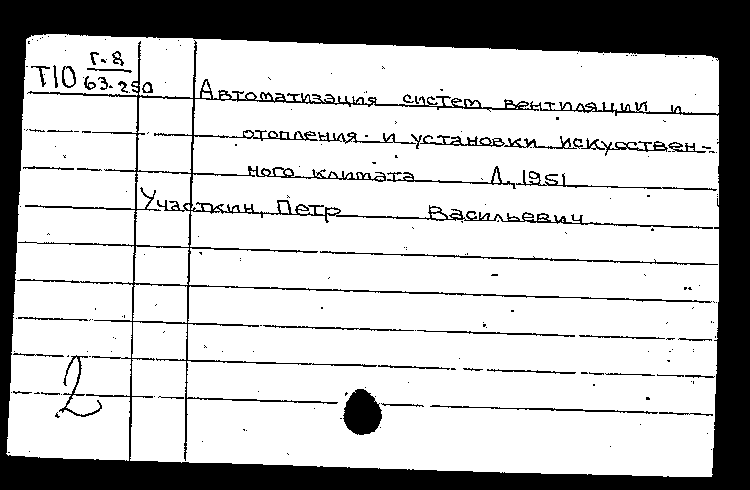 Т10 г.8
63.250
Автоматизация систем вентиляции и
отопления и установки искусствен-
ного климата Л., 1951
Участкин, Петр Васильевич
2